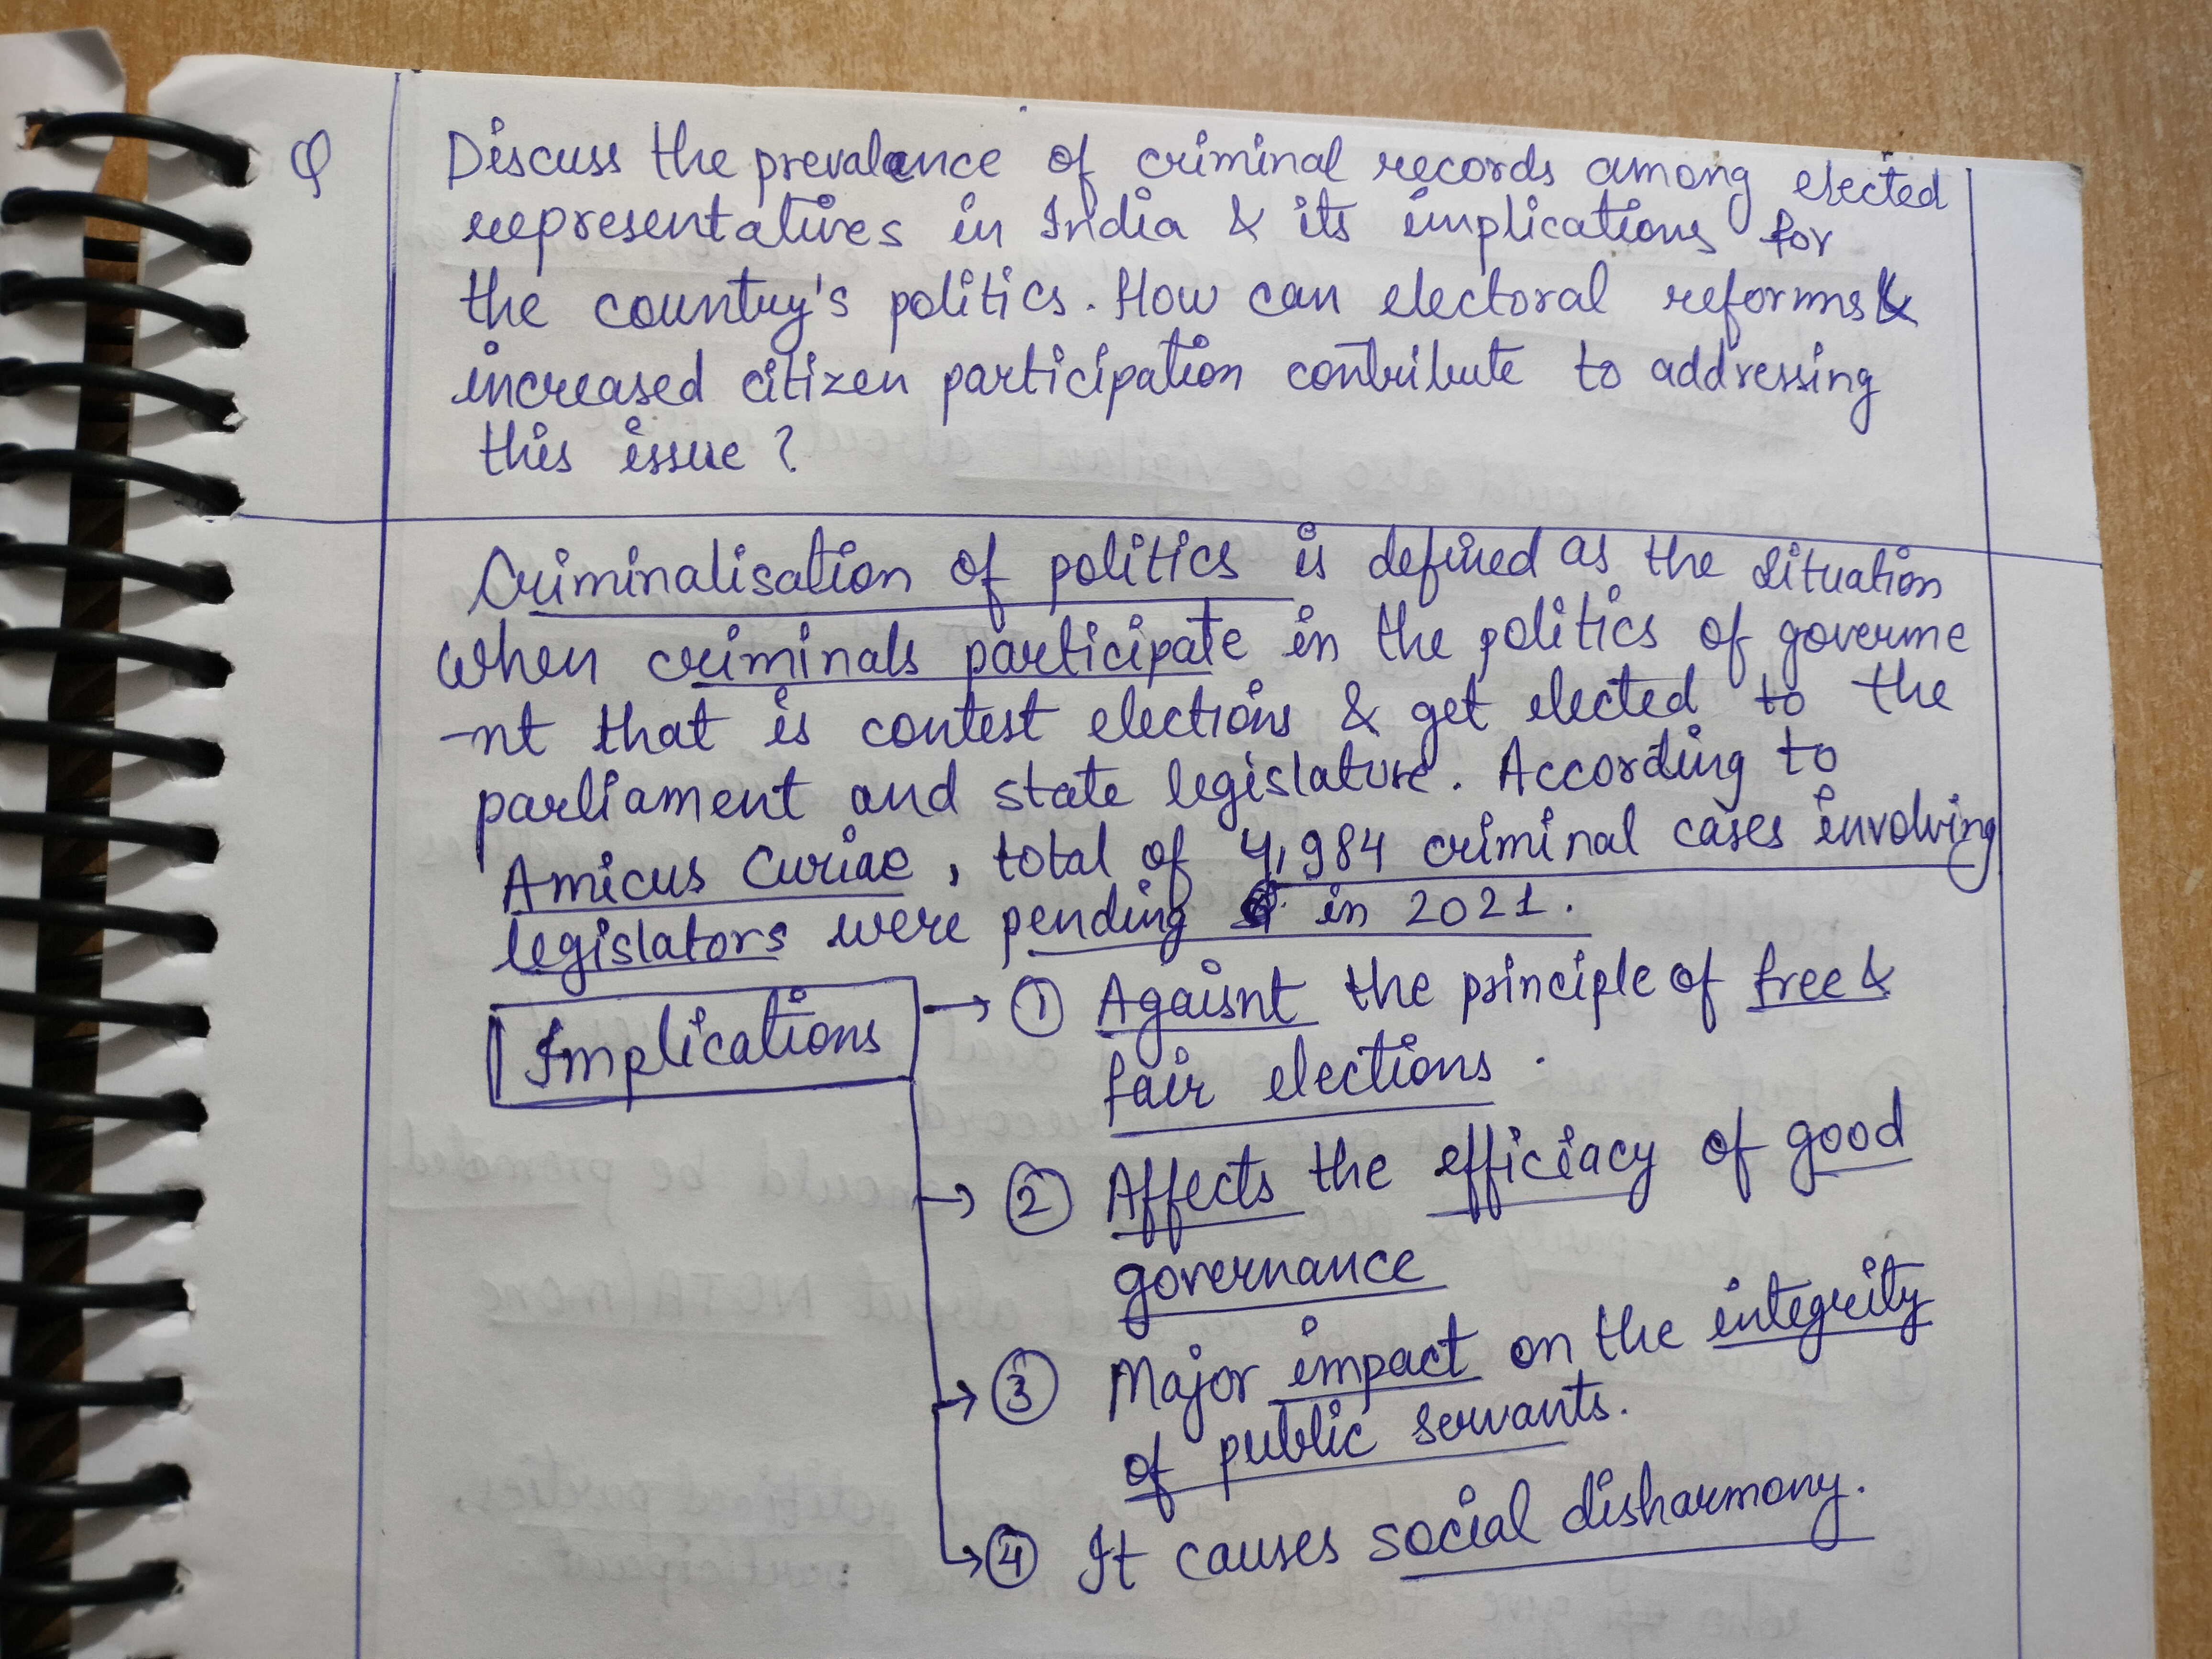 Q Discuss the prevalance of criminal records among elected
representatives in India & its implications for
the country's politics. How can electoral reforms &
increased citizen participation contribute to addressing
this issue ?
Criminalisation of politics is defined as the situation
when criminals participate in the politics of governme
-nt that is contest elections & get elected to the
parliament and state legislature. According to
Amicus Curiae, total of 4,984 criminal cases involving
legislators were pending in 2021.
Implications → ① Agaisnt the principle of free &
fair elections.
→ ② Affects the efficiacy of good
governance
→ ③ Major impact on the integrity
of public servants.
→ ④ It causes social disharmony.